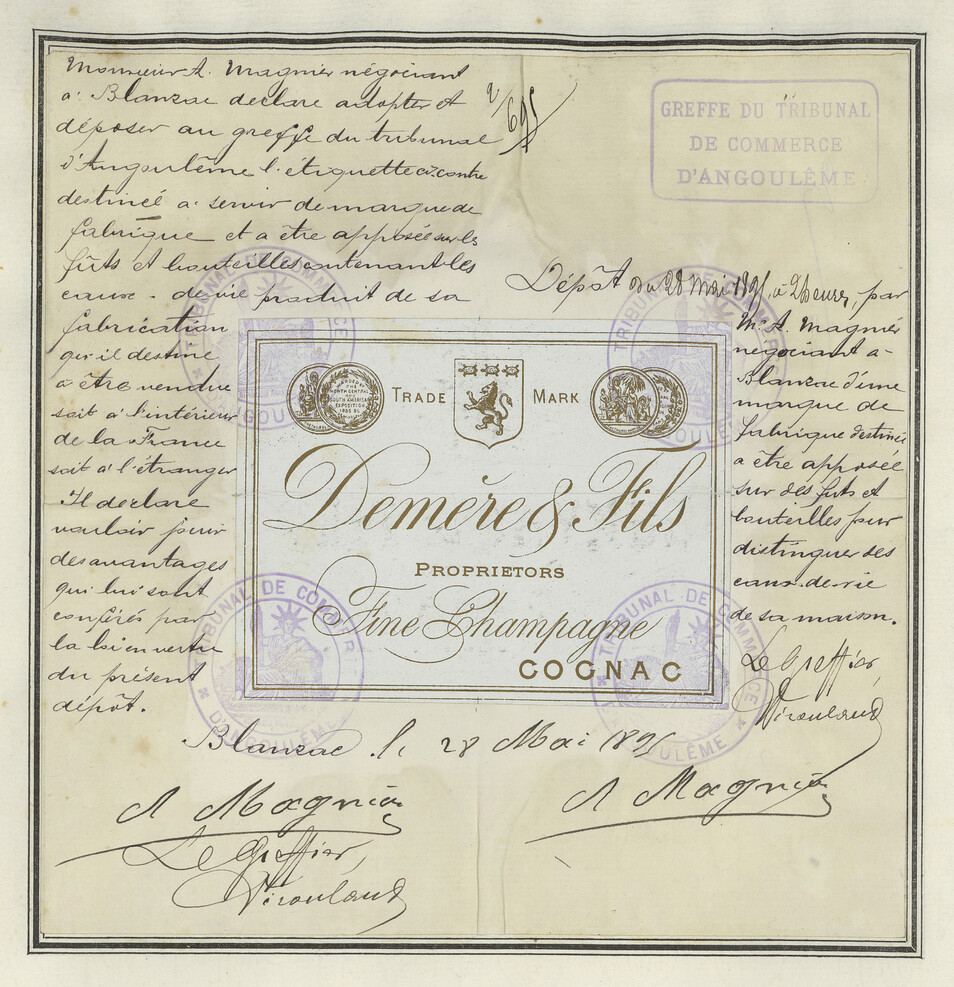 Monsieur A. Magnier négociant
à Blanzac declare adopter et
déposer au greffe du tribunal
d'Angoulême l'étiquette ci-contre
destinée a servir de marque de
fabrique et a être apposée sur les
fûts et bouteilles contenant les
eaux-de-vie produit de sa
fabrication
qu'il destine
a être vendue
soit a l'intérieur
de la France
soit a l'étranger
Il declare
vouloir jouir
des avantages
qui lui sont
conférés par
la loi en vertu
du présent
dépôt.
2/695
GREFFE DU TRIBUNAL
DE COMMERCE
D'ANGOULÊME
Dépôt du 28 Mai 1895, a 2 heures, par
Mr. A. Magnier
négociant a
Blanzac d'une
marque de
fabrique destinée
a être apposée
sur des futs et
bouteilles pour
distinguer les
eaux-de-vie
de sa maison.
Le Greffier,
TRADE MARK
Demère & Fils
PROPRIETORS
Fine Champagne
COGNAC
TRIBUNAL DE COMMERCE
D'ANGOULÊME
TRIBUNAL DE COMMERCE
D'ANGOULÊME
TRIBUNAL DE COMMERCE
D'ANGOULÊME
TRIBUNAL DE COMMERCE
D'ANGOULÊME
Blanzac le 28 Mai 1895
A Magnier
A Magnier
Le Greffier,